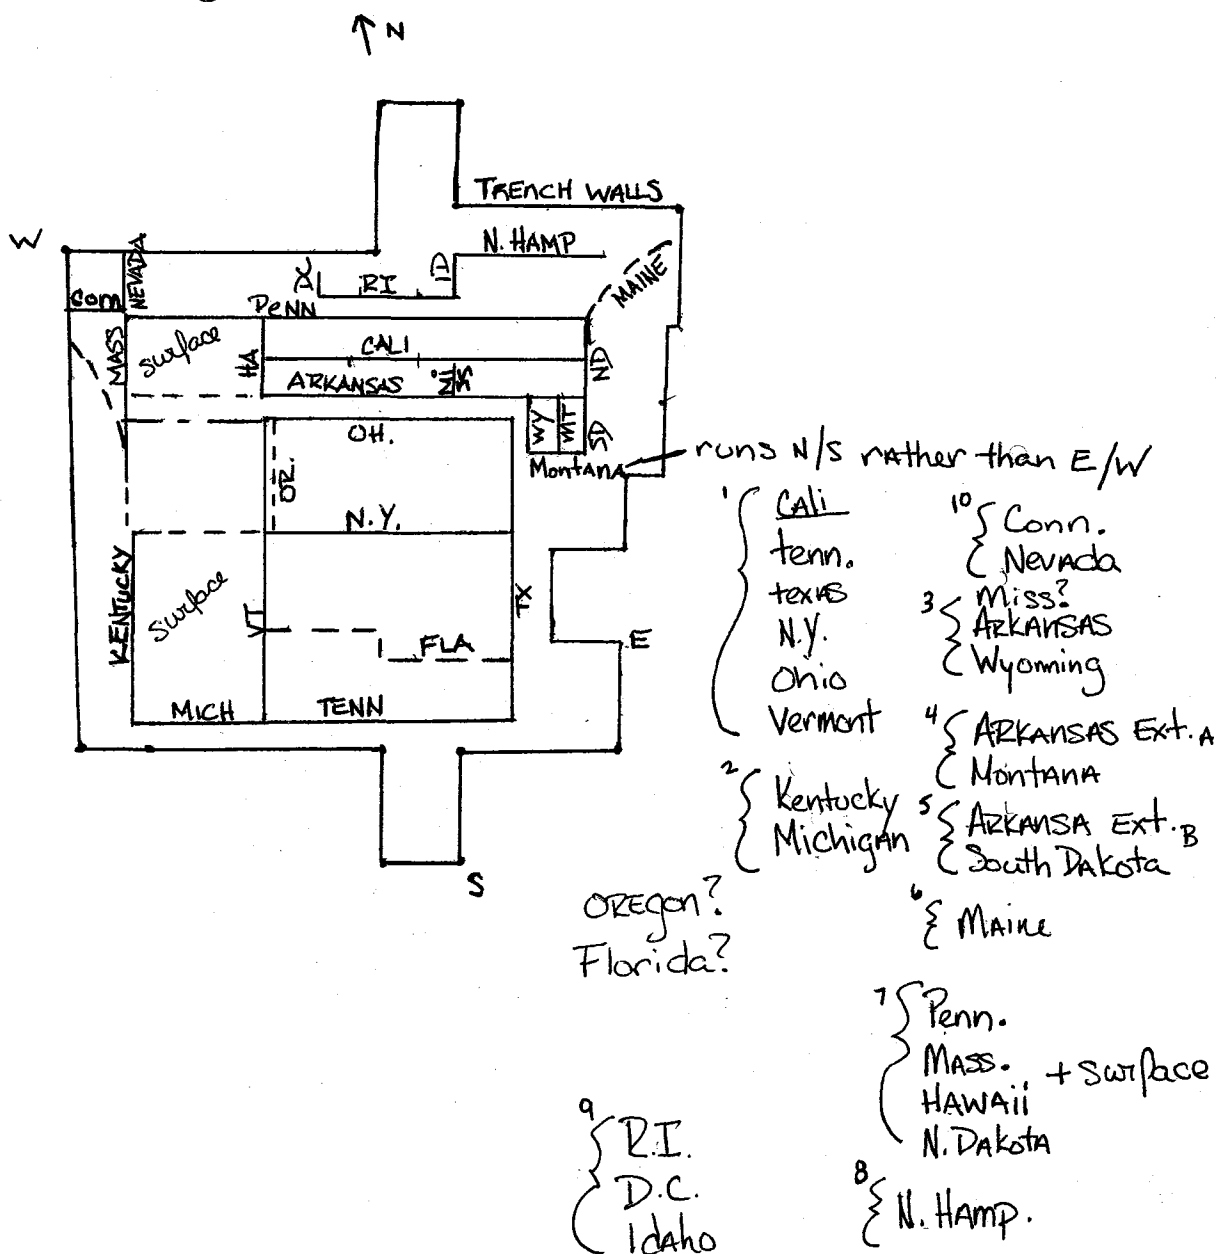 N
TRENCH WALLS
W
N. HAMP
NEVADA
DC
RI
ID
MAINE
Conn
PENN
MASS
surface
HA
CALI
ND
ARKANSAS
Miss.
WY
MT
SD
OH.
Montana
runs N/S rather than E/W
OR.
N.Y.
KENTUCKY
surface
VT
TX
FLA
E
MICH
TENN
S
1
CALi
tenn.
texas
N.Y.
Ohio
Vermont
2
Kentucky
Michigan
OREgon?
Florida?
10
Conn.
Nevada
3
Miss?
ARKANSAS
Wyoming
4
ARKANSAS Ext. A
MontANA
5
ARKANSA Ext. B
South DAKota
6
MAine
7
Penn.
MASS.
HAWAii
N. DAKotA
+ surface
8
N. HAmp.
9
R.I.
D.C.
IdAho